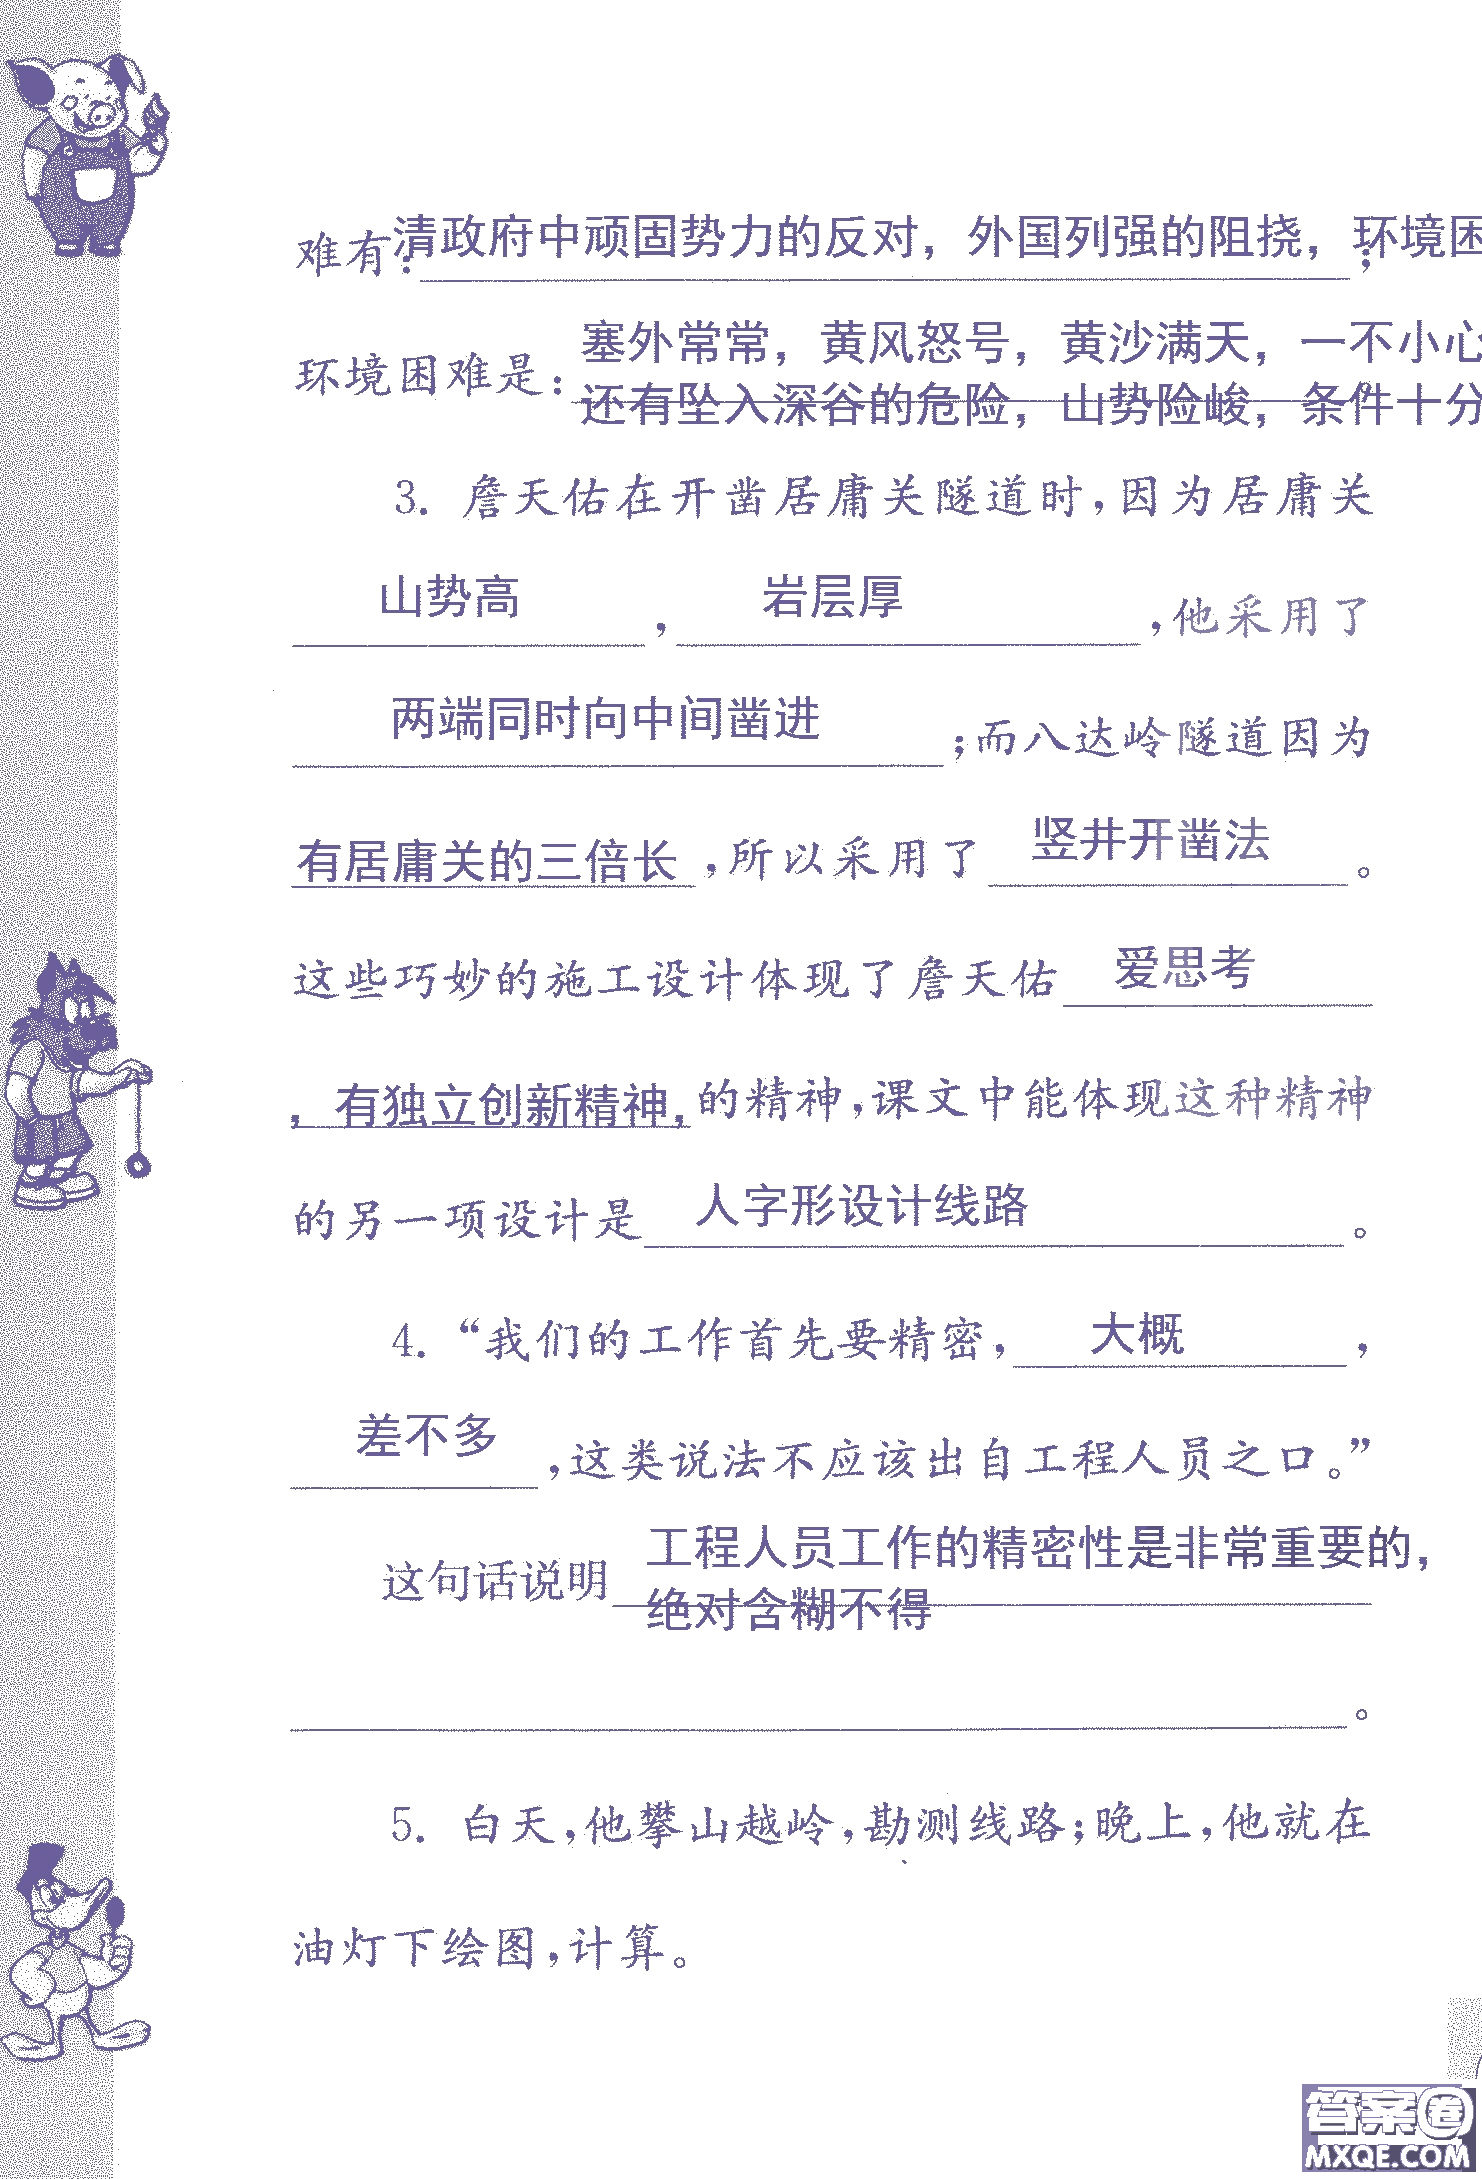 难有：清政府中顽固势力的反对，外国列强的阻挠，环境困；
环境困难是：塞外常常，黄风怒号，黄沙满天，一不小心
还有坠入深谷的危险，山势险峻，条件十分。
3. 詹天佑在开凿居庸关隧道时，因为居庸关
山势高，岩层厚，他采用了
两端同时向中间凿进；而八达岭隧道因为
有居庸关的三倍长，所以采用了竖井开凿法。
这些巧妙的施工设计体现了詹天佑爱思考
，有独立创新精神，的精神，课文中能体现这种精神
的另一项设计是人字形设计线路。
4. “我们的工作首先要精密，大概，
差不多，这类说法不应该出自工程人员之口。”
这句话说明工程人员工作的精密性是非常重要的，
绝对含糊不得
。
5. 白天，他攀山越岭，勘测线路；晚上，他就在
油灯下绘图，计算。
答案圈
MXQE.COM